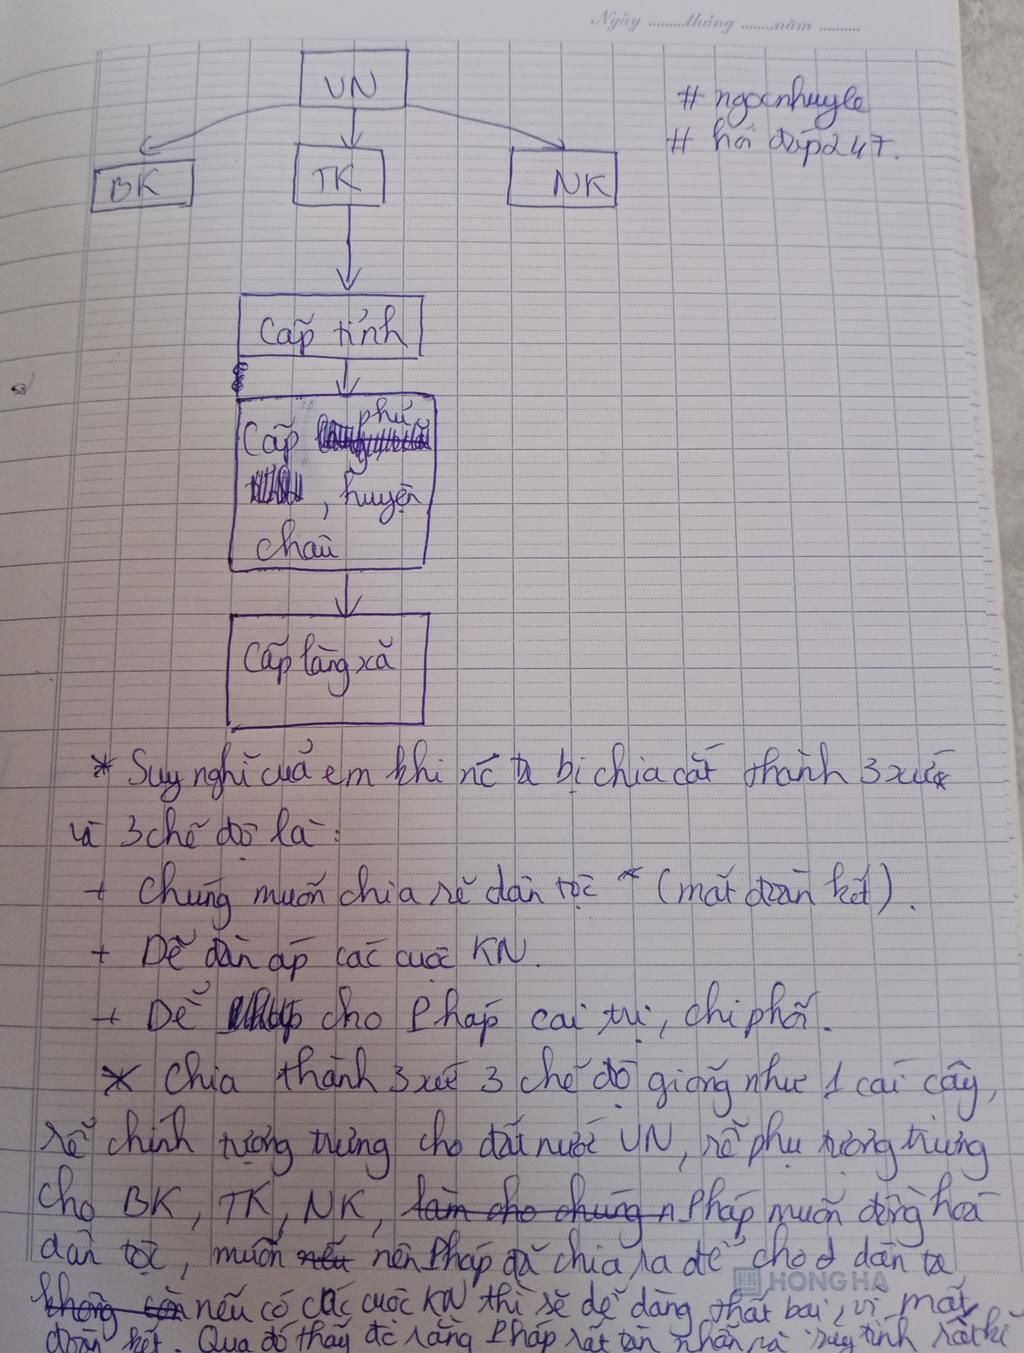 Ngày ........tháng .......năm ..........
VN
# ngocnhuyle
# hỏi đáp247.
BK
TK
NK
Cấp tỉnh
Cấp phủ
, huyện
châu
Cấp làng xã
* Suy nghĩ của em khi nc ta bị chia cắt thành 3 xứ
và 3 chế độ là:
+ Chúng muốn chia rẽ dân tộc (mất đoàn kết).
+ Dễ đàn áp các cuộc KN.
+ Dễ cho Pháp cai trị, chi phối.
* Chia thành 3 xứ 3 chế độ giống như 1 cái cây,
rễ chính tượng trưng cho đất nước VN, rễ phụ tượng trưng
cho BK, TK, NK, làm cho chúng Pháp muốn đồng hoá
dân tộc, muốn nên Pháp đã chia ra để cho dân ta
không còn nếu có các cuộc KN thì sẽ dễ dàng thất bại, vì mất
HONG HA
đoàn kết. Qua đó thấy đc rằng Pháp rất tàn nhẫn và suy tính rất